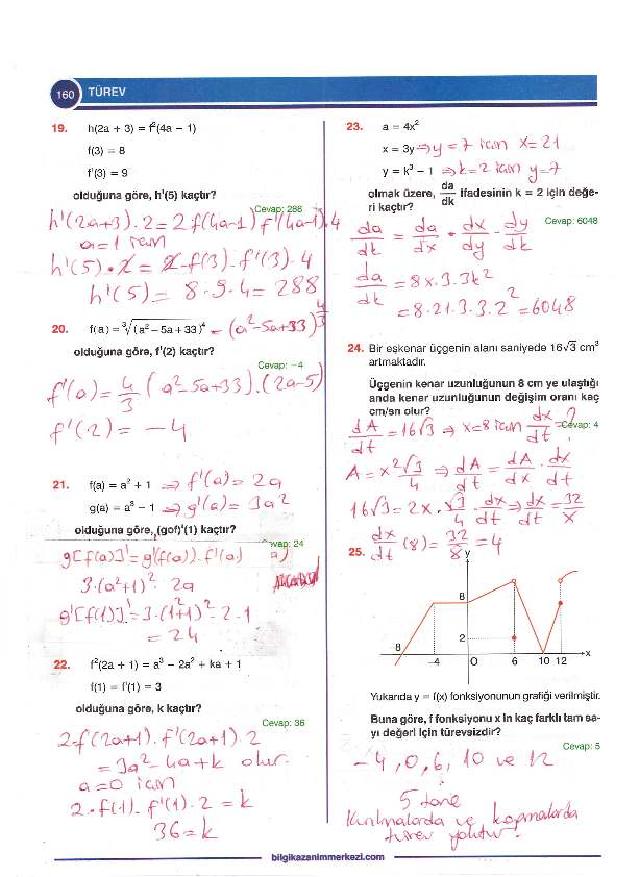 160 TÜREV
19. h(2a + 3) = f²(4a − 1)
f(3) = 8
f'(3) = 9
olduğuna göre, h'(5) kaçtır?
Cevap: 288
h'(2a+3)·2 = 2f(4a-1) f'(4a-1)·4
a=1 için
h'(5)·2 = 2·f(3)·f'(3)·4
h'(5) = 8·9·4 = 288
20. f(a) = ³√(a² − 5a + 33)⁴ = (a²-5a+33)^4/3
olduğuna göre, f'(2) kaçtır?
Cevap: −4
f'(a) = 4/3 (a²-5a+33)·(2a-5)
f'(2) = -4
21. f(a) = a² + 1 ⇒ f'(a) = 2a
g(a) = a³ − 1 ⇒ g'(a) = 3a²
olduğuna göre, (gof)'(1) kaçtır?
Cevap: 24
g[f(a)]' = g'(f(a))·f'(a)
3·(a²+1)²·2a
g'[f(1)]' = 3·(1²+1)²·2·1
= 24
22. f²(2a + 1) = a³ − 2a² + ka + 1
f(1) = f'(1) = 3
olduğuna göre, k kaçtır?
Cevap: 36
2·f(2a+1)·f'(2a+1)·2
= 3a²-4a+k olur.
a=0 için
2·f(1)·f'(1)·2 = k
36 = k
23. a = 4x²
x = 3y ⇒ y = 7 için x = 21
y = k³ − 1 ⇒ k = 2 için y = 7
olmak üzere, da/dk ifadesinin k = 2 için değe-
ri kaçtır?
Cevap: 6048
da/dk = da/dx · dx/dy · dy/dk
da/dk = 8x·3·3k²
= 8·21·3·3·2² = 6048
24. Bir eşkenar üçgenin alanı saniyede 16√3 cm²
artmaktadır.
Üçgenin kenar uzunluğunun 8 cm ye ulaştığı
anda kenar uzunluğunun değişim oranı kaç
cm/sn olur?
Cevap: 4
dA/dt = 16√3 ⇒ x=8 için dx/dt = ?
A = x²√3/4 ⇒ dA/dt = dA/dx · dx/dt
16√3 = 2x·√3/4·dx/dt ⇒ dx/dt = 32/x
dx/dt (8) = 32/8 = 4
25.
y
8
2
-8 −4 O 6 10 12 x
Yukarıda y = f(x) fonksiyonunun grafiği verilmiştir.
Buna göre, f fonksiyonu x in kaç farklı tam sa-
yı değeri için türevsizdir?
Cevap: 5
-4, 0, 6, 10 ve 12
5 tane
Kırılmalarda ve kopmalarda
türev yoktur.
bilgikazanimmerkezi.com